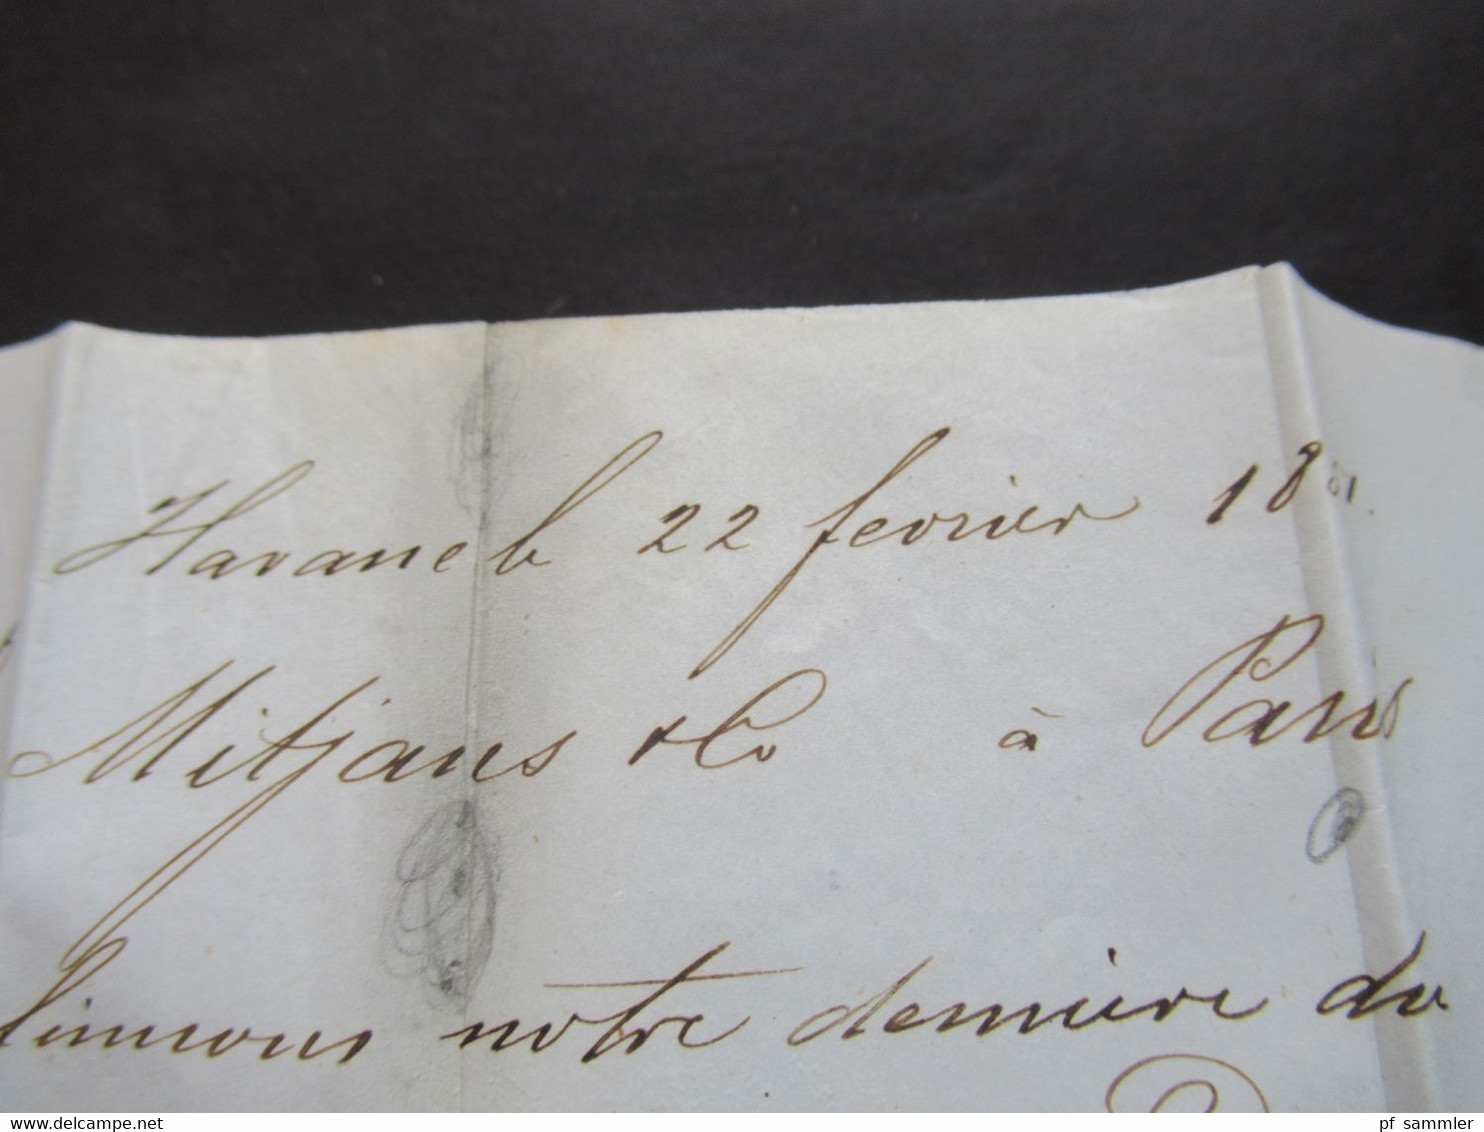 Havane le 22 fevrier 18
Mitjans & Co à Paris
notre derniere du
www.delcampe.net
pf_sammler